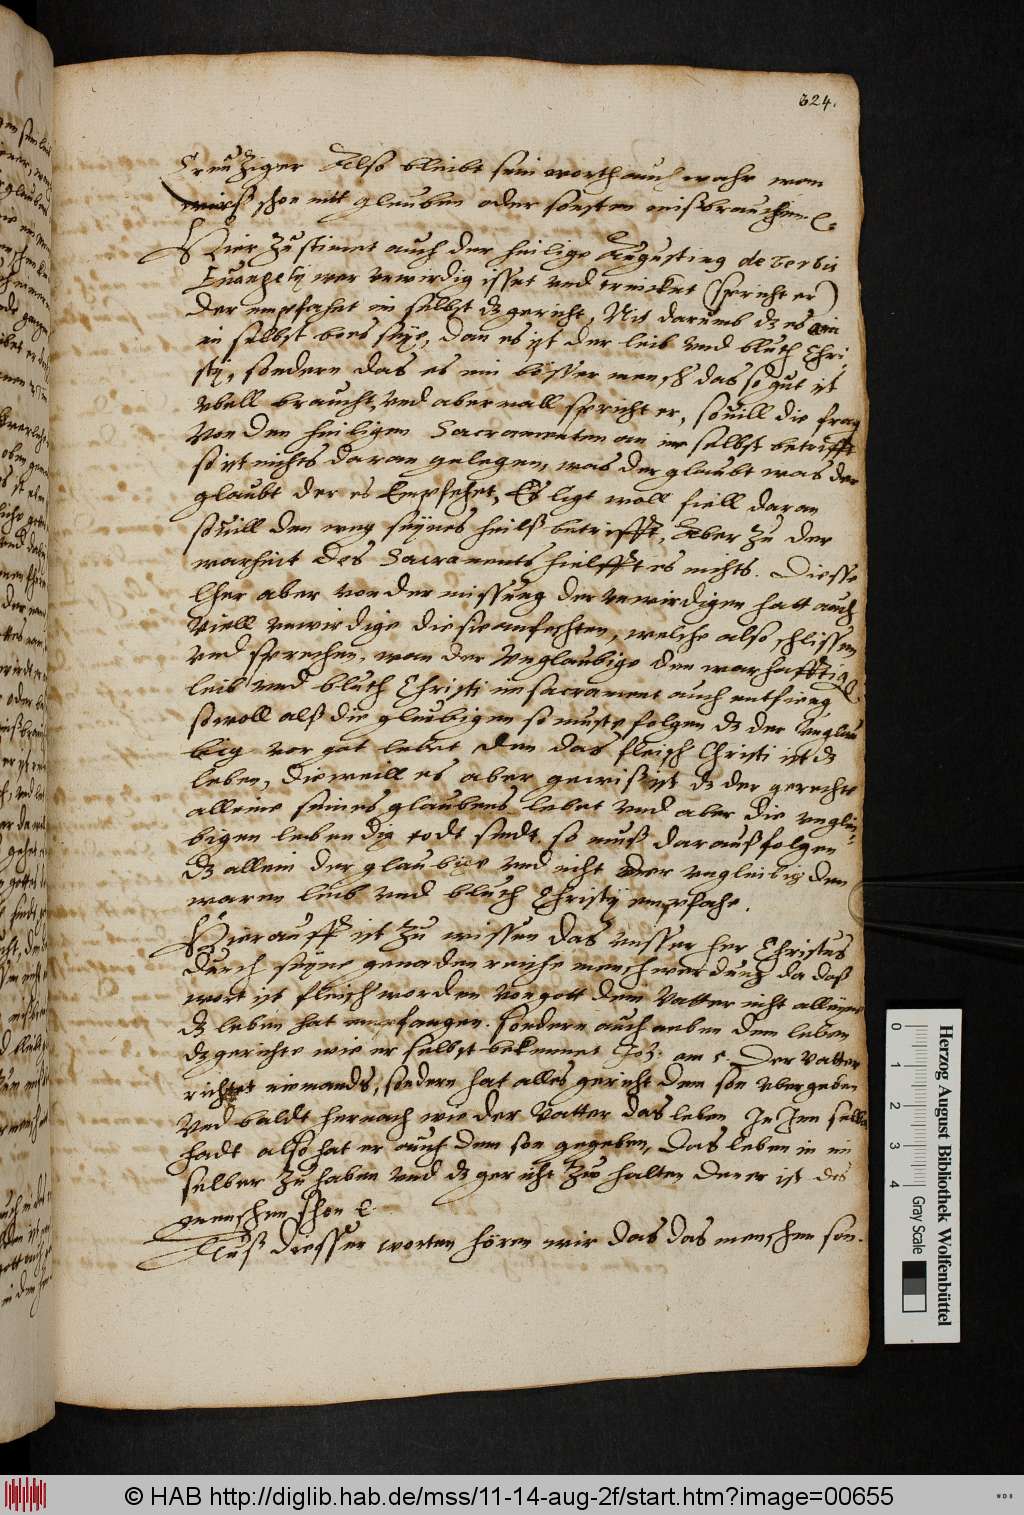 324.
Creuziger Also bleibt sein worth auch wahr wan
wirß schon nitt glauben oder sonsten mißbrauchen ꝛc.
Hier zustimet auch der heilige Augustinq de verbis
Euangelij wer vnwirdig isset vnd trincket (spricht er)
der empfahet im selbst dz gericht, Nit darumb dz es ein
im selbst boes seye, dan es ist der leib vnd bluth Chri
sti, sondern das es ein bösser mensch das so gut ist
vbell braucht, vnd abermall spricht er, souill die frag
von den heiligen Sacramenten an im selbst betrifft
so ist nichts daran gelegen, was der glaubt was der
glaubt der es Empfehet, Es ligt woll fiell daran
souill den weg seynes heilß betrifft, Aber zu der
warheit des Sacraments hielfft es nichts. Diesse
lher aber von der niessung der vnwirdigen hatt auch
viell vnwirdige die sie anfechten, welche also schlissen
vnd sprechen, wan der vnglaubige den warhafftig
leib vnd bluth Christi im sacrament auch entfieng
so woll alß die glaubigen so muste folgen dz der vnglau
big vor got lebet den das fleisch Christi ist dz
leben, dieweill es aber gewiß ist dz der gerechte
alleine seines glaubens lebet vnd aber die vnglau-
bigen lebendig todt sindt so muß darauß folgen
dz allein der glaubige vnd nicht der vngleubig den
waren leib vnd bluth Christi empfahe.
Hierauff ist zu wissen das vnsser her Christus
durch seyne genadenreiche menschwerdung da daß
wort ist fleisch worden von gott dem Vatter nicht alleine
dz leben hat empfangen. sondern auch neben dem leben
dz gerichte wie er selbst bekennet Joh: am 5. Der Vatter
richtet niemands, sondern hat alles gericht dem son vbergeben
vnd baldt hernach wie der Vatter das leben In Im selbs
hadt also hat er auch dem son gegeben, das leben in im
selber zu haben vnd dz gericht zu halten den er ist des
menschen shon ꝛc.
Auß diessen worten hören wir das das menschen son.
Herzog August Bibliothek Wolfenbüttel
0 1 2 3 4
Gray Scale
© HAB http://diglib.hab.de/mss/11-14-aug-2f/start.htm?image=00655